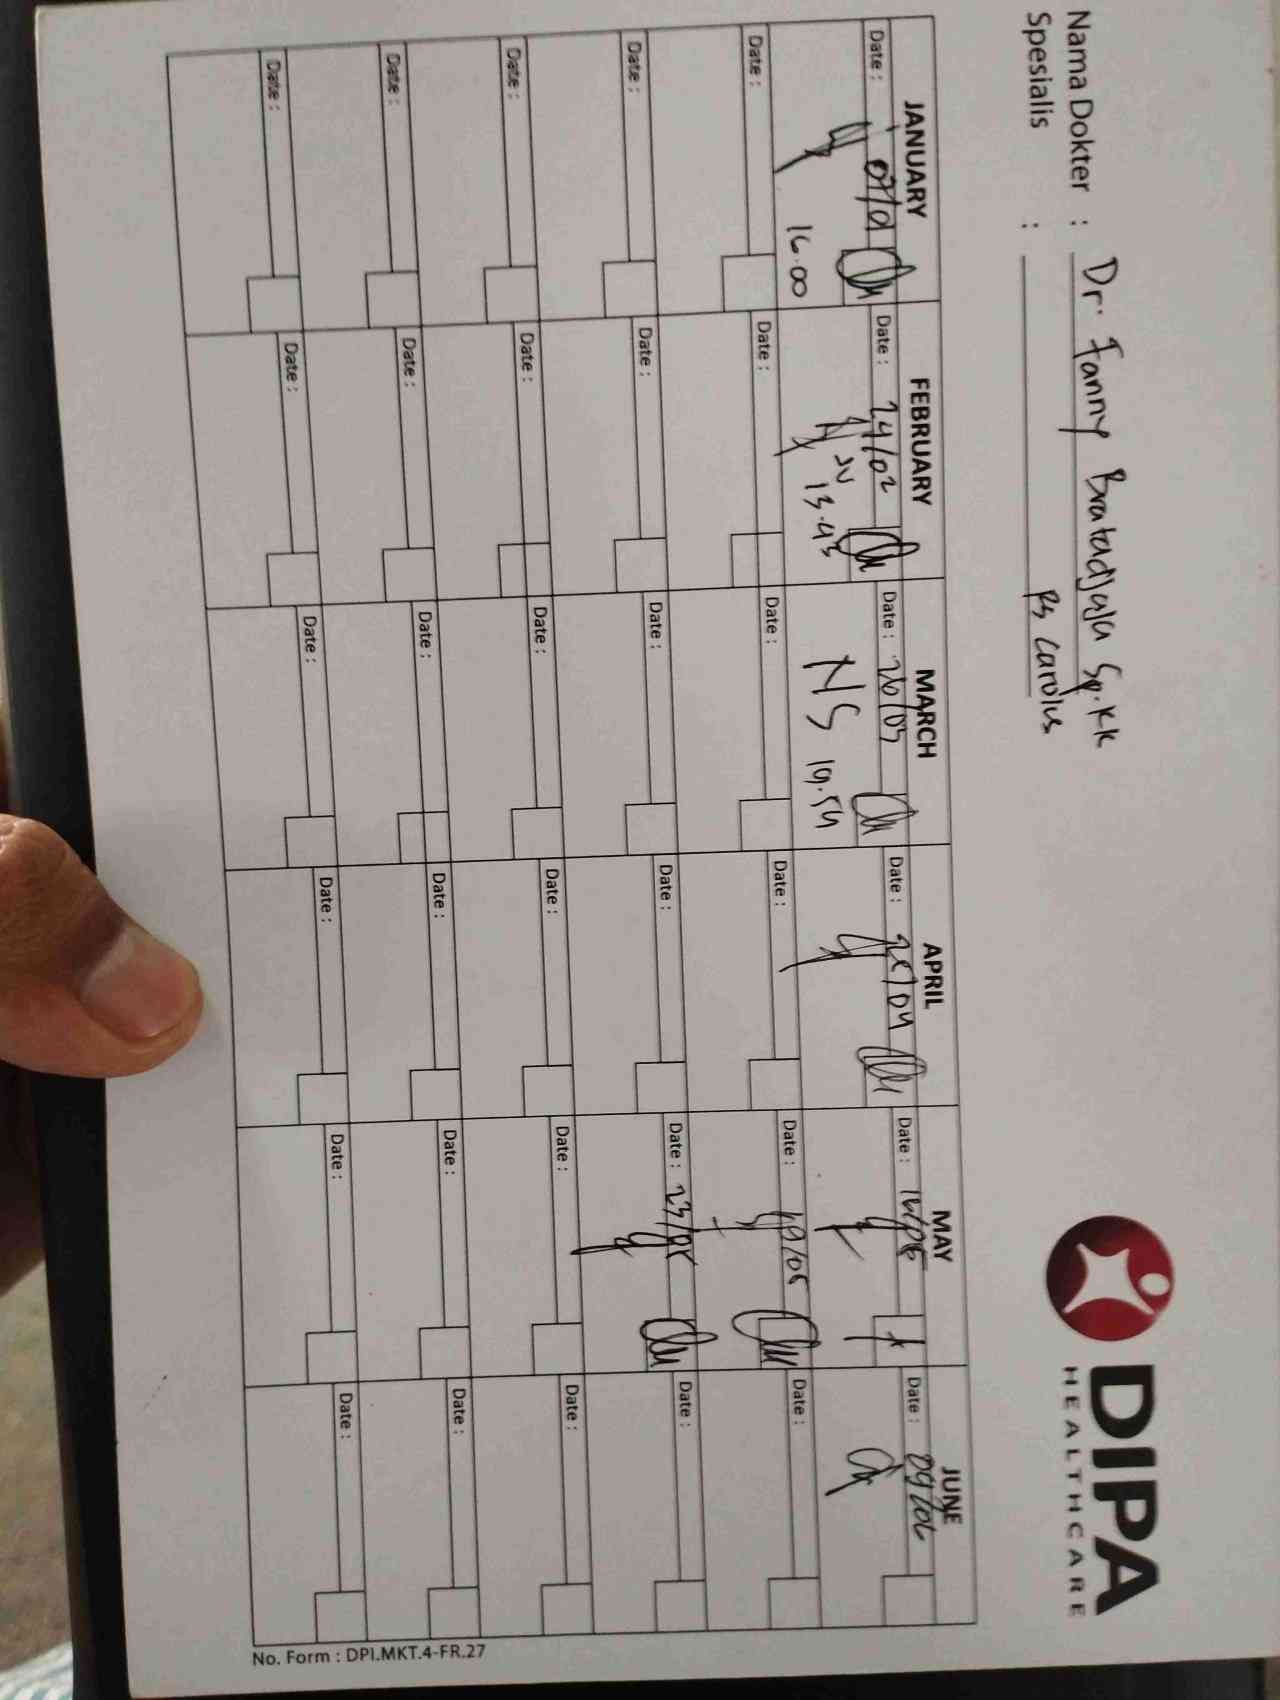 DIPA
HEALTHCARE
Nama Dokter : Dr. Fanny Bratadjaja Sp.KK
Spesialis : RS Carolus
JANUARY FEBRUARY MARCH APRIL MAY JUNE
Date : Date : 24/02 Date : 26/03 Date : 25/04 Date : 16/05 Date : 09/06
16.00 13.45 NS 19.54
Date : Date : Date : Date : Date : 19/05 Date :
Date : Date : Date : Date : Date : 23/05 Date :
Date : Date : Date : Date : Date : Date :
Date : Date : Date : Date : Date : Date :
Date : Date : Date : Date : Date : Date :
No. Form : DPI.MKT.4-FR.27